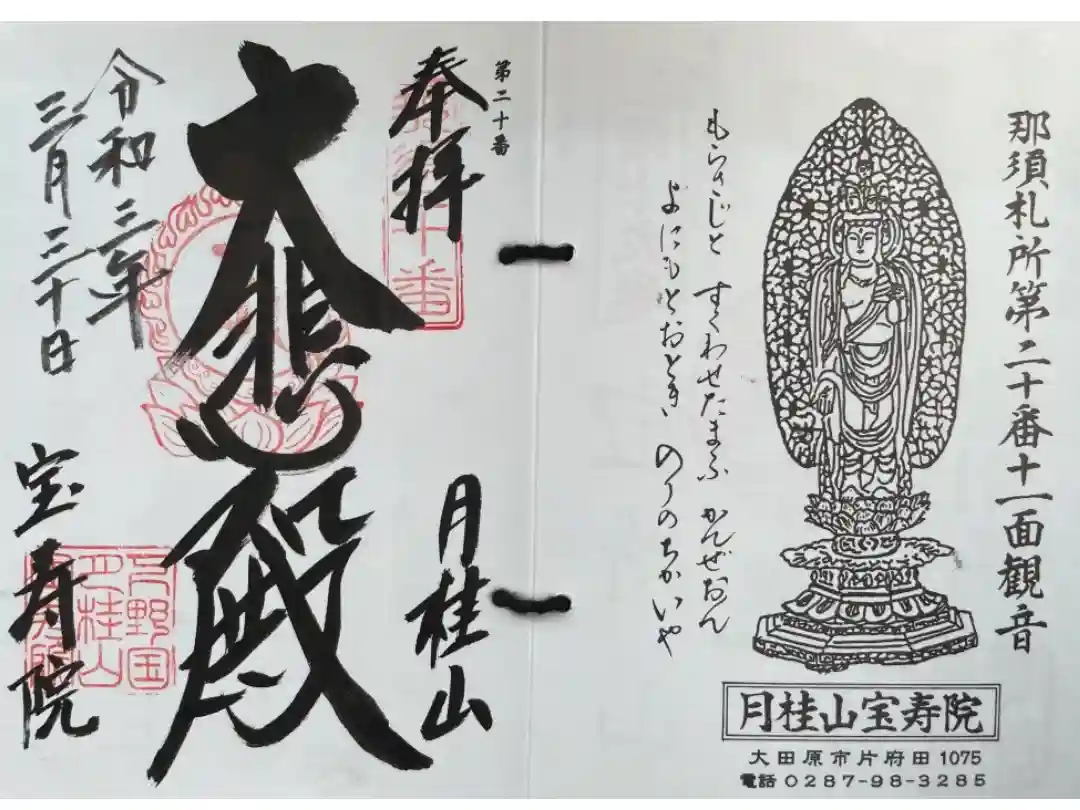 那須札所第二十番十一面観音
もらさじと すくわせたまふ かんぜおん
よにもとおとき のりのちかいや
月桂山宝寿院
大田原市片府田1075
電話0287-98-3285
第二十番
奉拝
月桂山
大悲殿
令和三年
三月三十日
宝寿院
下野国
月桂山